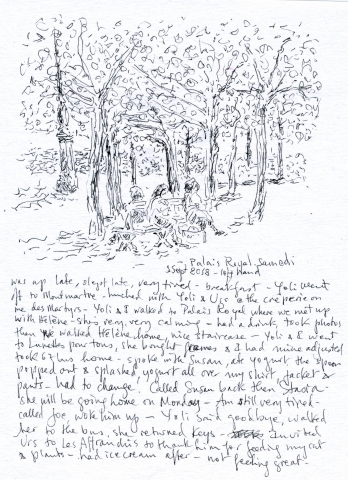 Palais Royal. Samedi
1 Sept 2018 - left Hand
was up late, slept late, very tired - breakfast - Yoli went
off to Montmartre - lunched with Yoli & Urs @ the creperie on
rue des Martyrs - Yoli & I walked to Palais Royal where we met up
with Hélène - she's very, very calming - had a drink, took photos
then we walked Hélène home, nice staircase - Yoli & I went
to Lunettes pour tous, she bought frames & I had mine adjusted
took 67 bus home - spoke with Susan, ate yogurt, the spoon
popped out & splashed yogurt all over my shirt, jacket &
pants - had to change! Called Susan back then Stacia -
she will be going home on Monday - Am still very tired -
called Joe, woke him up - Yoli said goodbye, walked
her to the bus, she returned keys - invited
Urs to Les Affranchis to thank him for feeding my cat
& plants - had ice cream after - not feeling great -